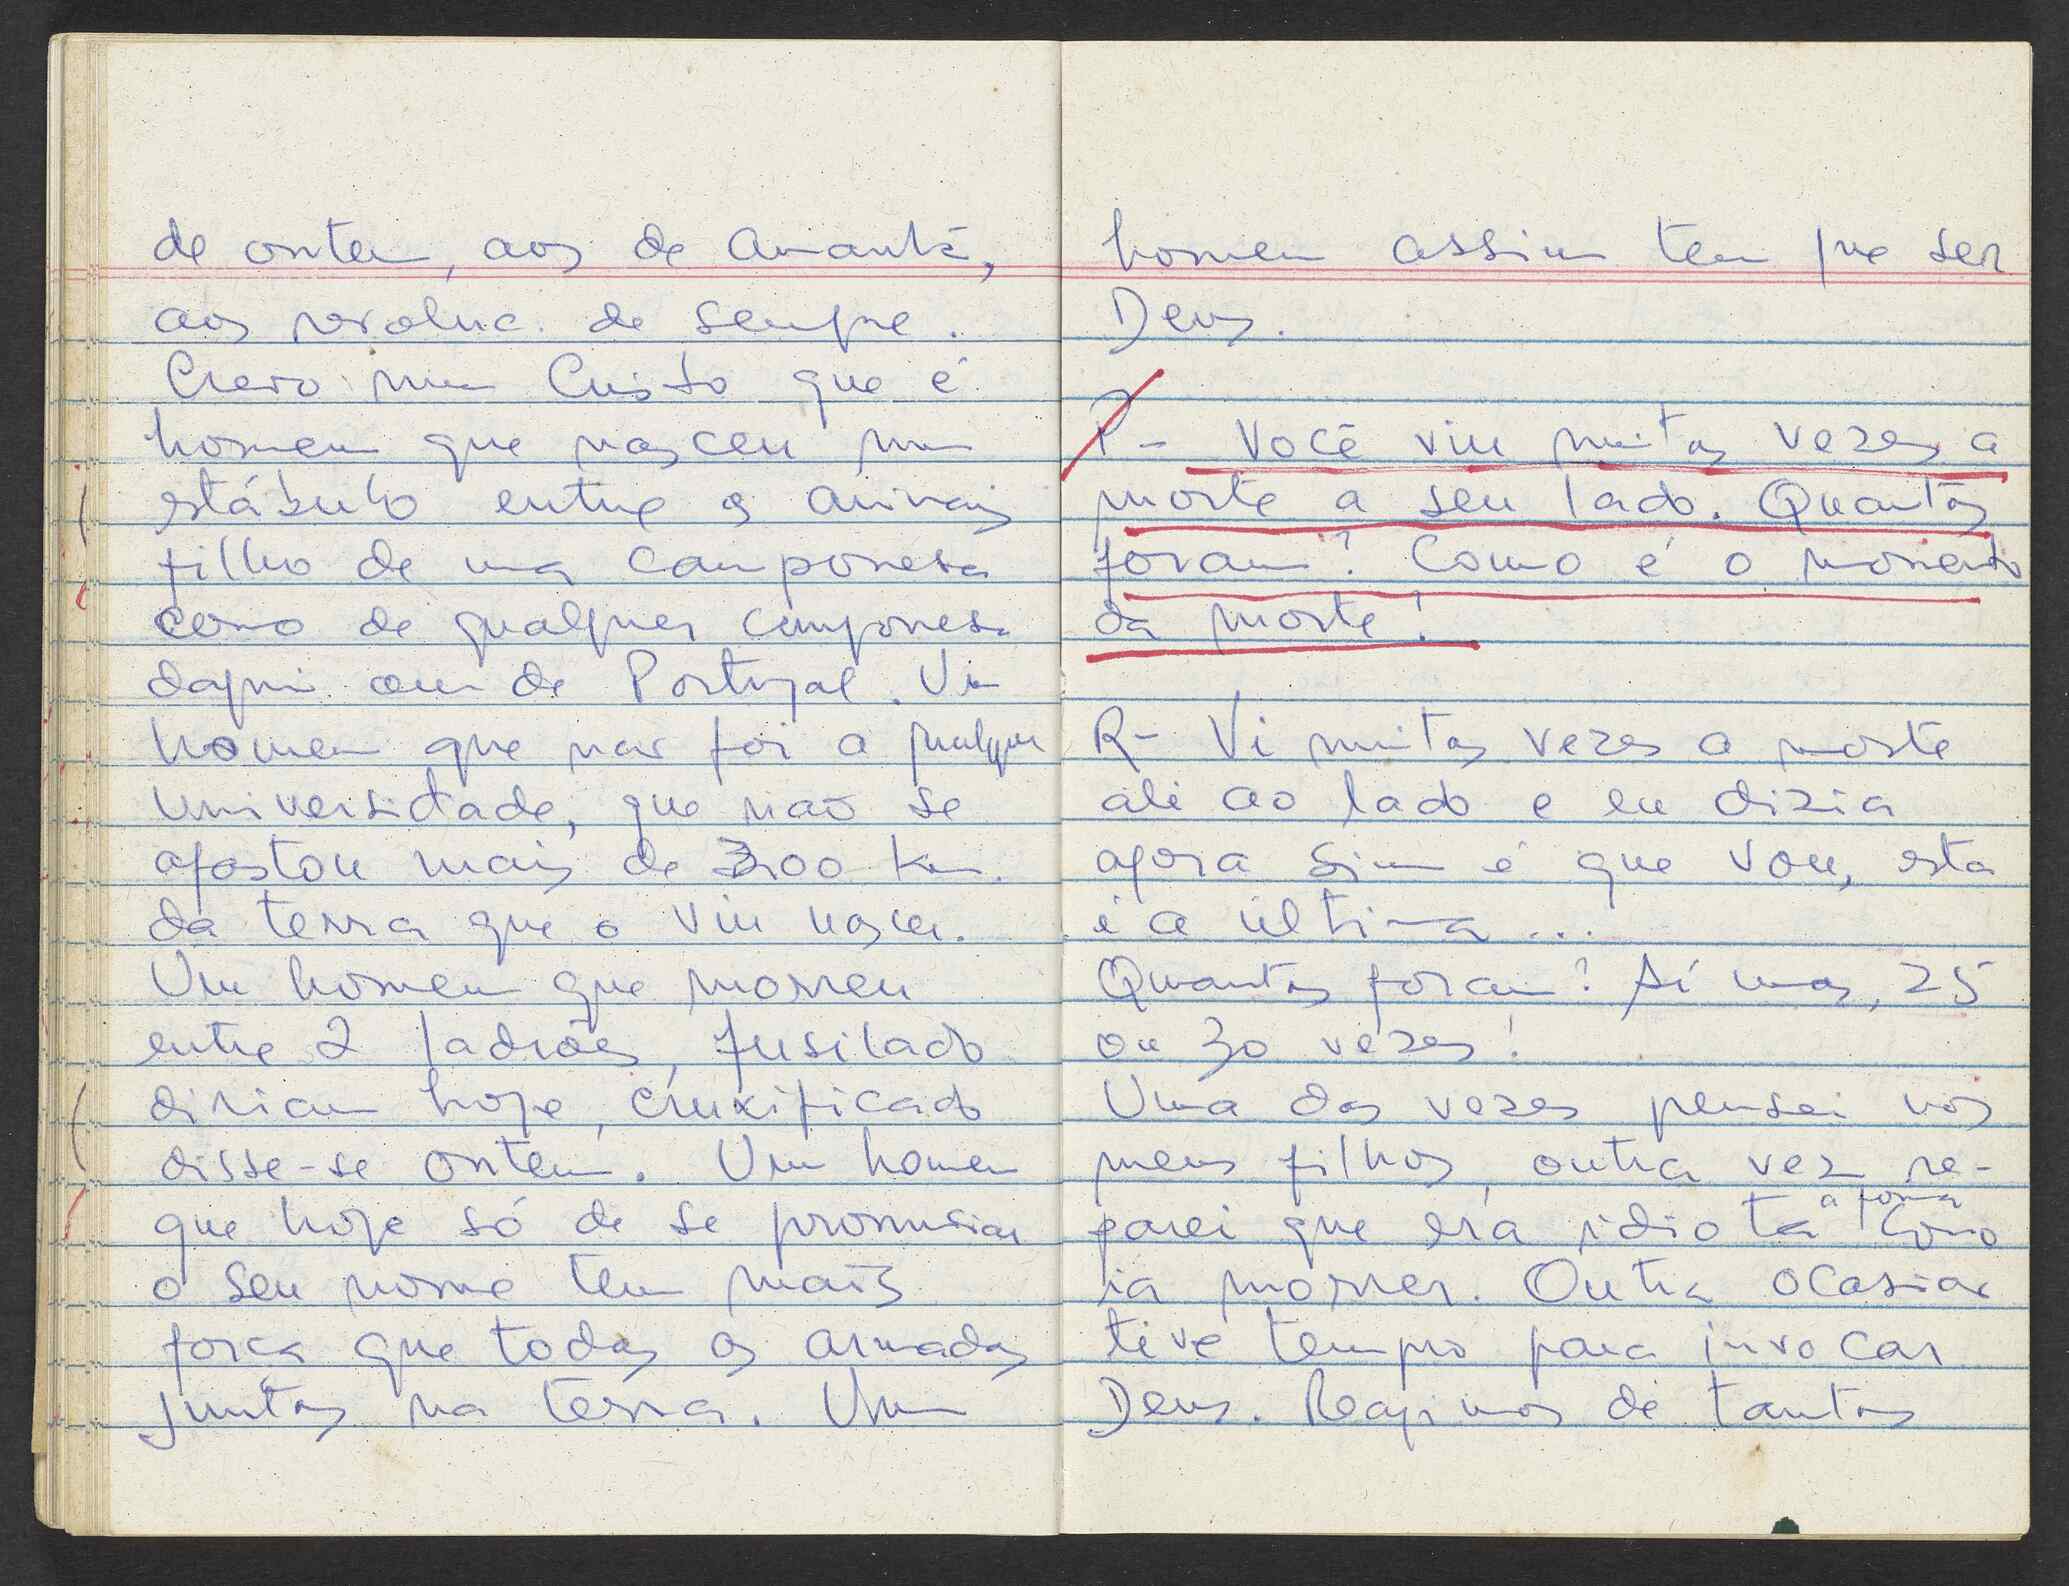 de ontem, aos de amanhã,
aos revoluc. de sempre.
Creio num Cristo que é
homem que nasceu num
estábulo entre os animais
filho de uma camponesa
como de qualquer camponesa
daqui ou de Portugal. Um
homem que nao foi a qualquer
Universidade, que não se
afastou mais de 300 km.
da terra que o viu nascer.
Um homem que morreu
entre 2 ladrões, fusilado
diriam hoje, cruxificado
disse-se ontem. Um homem
que hoje só de se pronunciar
o seu nome tem mais
força que todas as armadas
juntas na terra. Um
homem assim tem que ser
Deus.
P- Você viu muitas vezes a
morte a seu lado. Quantas
foram? Como é o momento
da morte?
R- Vi muitas vezes a morte
ali ao lado e eu dizia
agora sim é que vou, esta
é a última...
Quantas foram? Aí umas, 25
ou 30 vezes!
Uma das vezes pensei nos
meus filhos, outra vez re-
parei que era idiota a forma como
ia morrer. Outra ocasiao
tive tempo para invocar
Deus. Reagimos de tantas